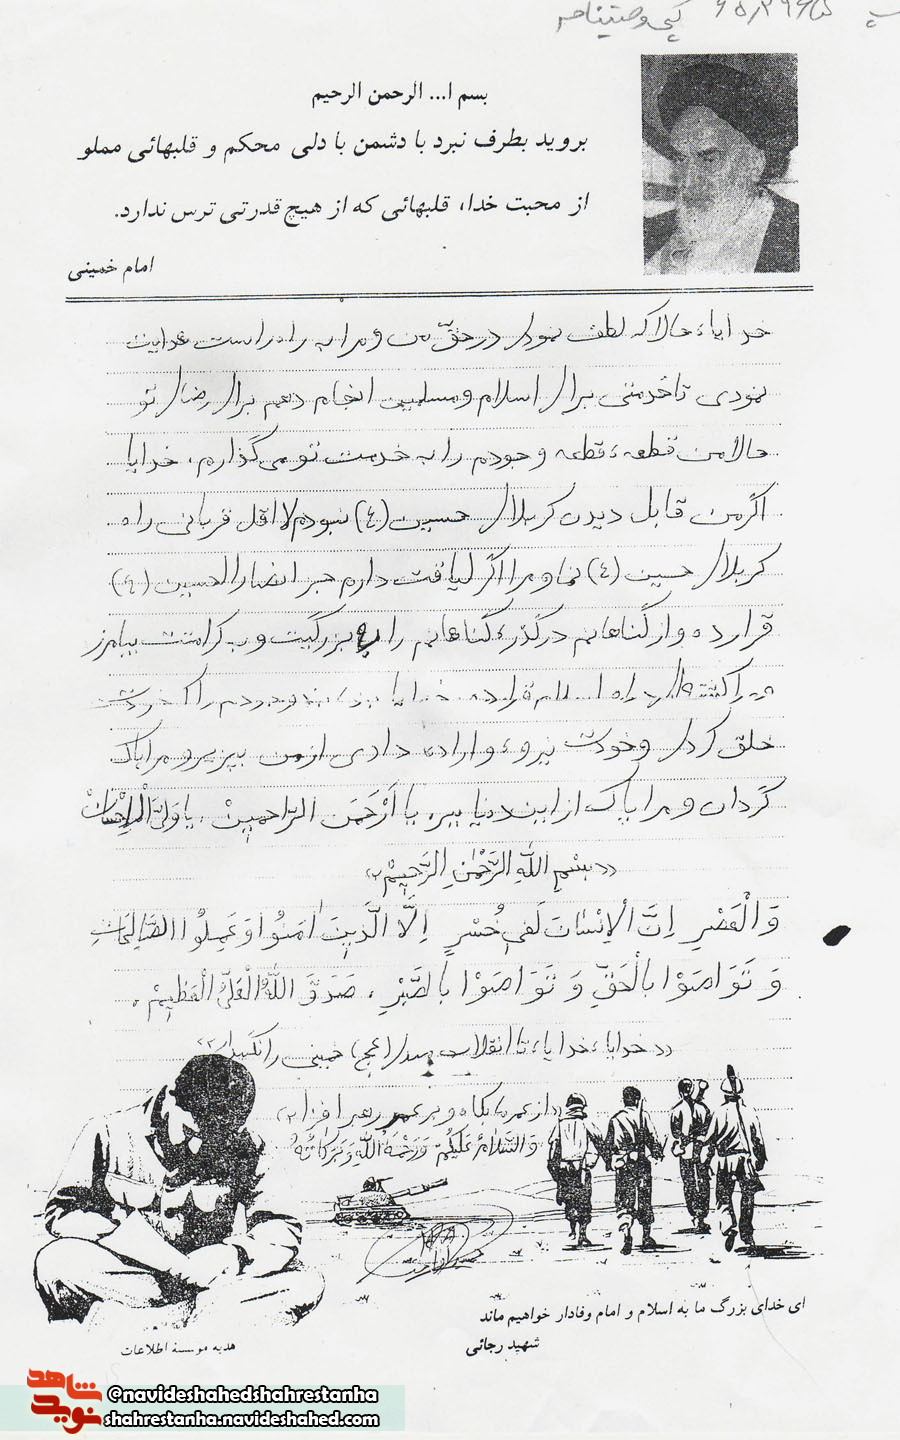 کپی وصیتنامه
بسم ا... الرحمن الرحیم
بروید بطرف نبرد با دشمن با دلی محکم و قلبهائی مملو
از محبت خدا، قلبهائی که از هیچ قدرتی ترس ندارد.
امام خمینی
خدایا، حالا که لطف نمودی در حق من و مرا به راه راست هدایت
نمودی تا خدمتی برای اسلام و مسلمین انجام دهم برای رضای تو
حالا من قطعه، قطعه وجودم را به خدمت تو می گذارم، خدایا
اگر من قابل دیدن کربلای حسین (ع) نبودم لااقل قربانی راه
کربلای حسین (ع) نما و مرا اگر لیاقت دارم جز انصار الحسین (ع)
قرار ده و از گناهانم درگذر، گناهانم را به بزرگیت و به کرامتت بیامرز
راه اسلام قرار ده خدایا را که خودت
خلق کردی و خودت نیرو و اراده دادی از من بپذیر و مرا پاک
گردان و مرا پاک از این دنیا ببر. یا أرْحَمَ الرّاحمینْ.
«بِسْمِ اللهِ الرَّحْمٰنِ الرَّحیمْ»
وَ الْعَصْرِ اِنَّ الْاِنْسٰانَ لَفی خُسْرٍ اِلَّا الَّذینَ اٰمَنُوا وَ عَمِلُوا الصّٰالِحٰاتِ
وَ تَوَاصَوْا بِالْحَقِّ وَ تَوَاصَوْا بِالصَّبْرِ. صَدَقَ اللهُ الْعَلیُّ الْعَظیمْ.
«خدایا، خدایا، تا انقلاب مهدی (عج) خمینی را نگهدار»
«از عمر ما بکاه و بر عمر رهبر افزا»
وَ السَّلامُ عَلَیْکُمْ وَ رَحْمَةُ اللهِ وَ بَرَکاتُهُ
ای خدای بزرگ ما به اسلام و امام وفادار خواهیم ماند
شهید رجائی
هدیه موسسه اطلاعات
نوید شاهد
@navideshahedshahrestanha
shahrestanha.navideshahed.com